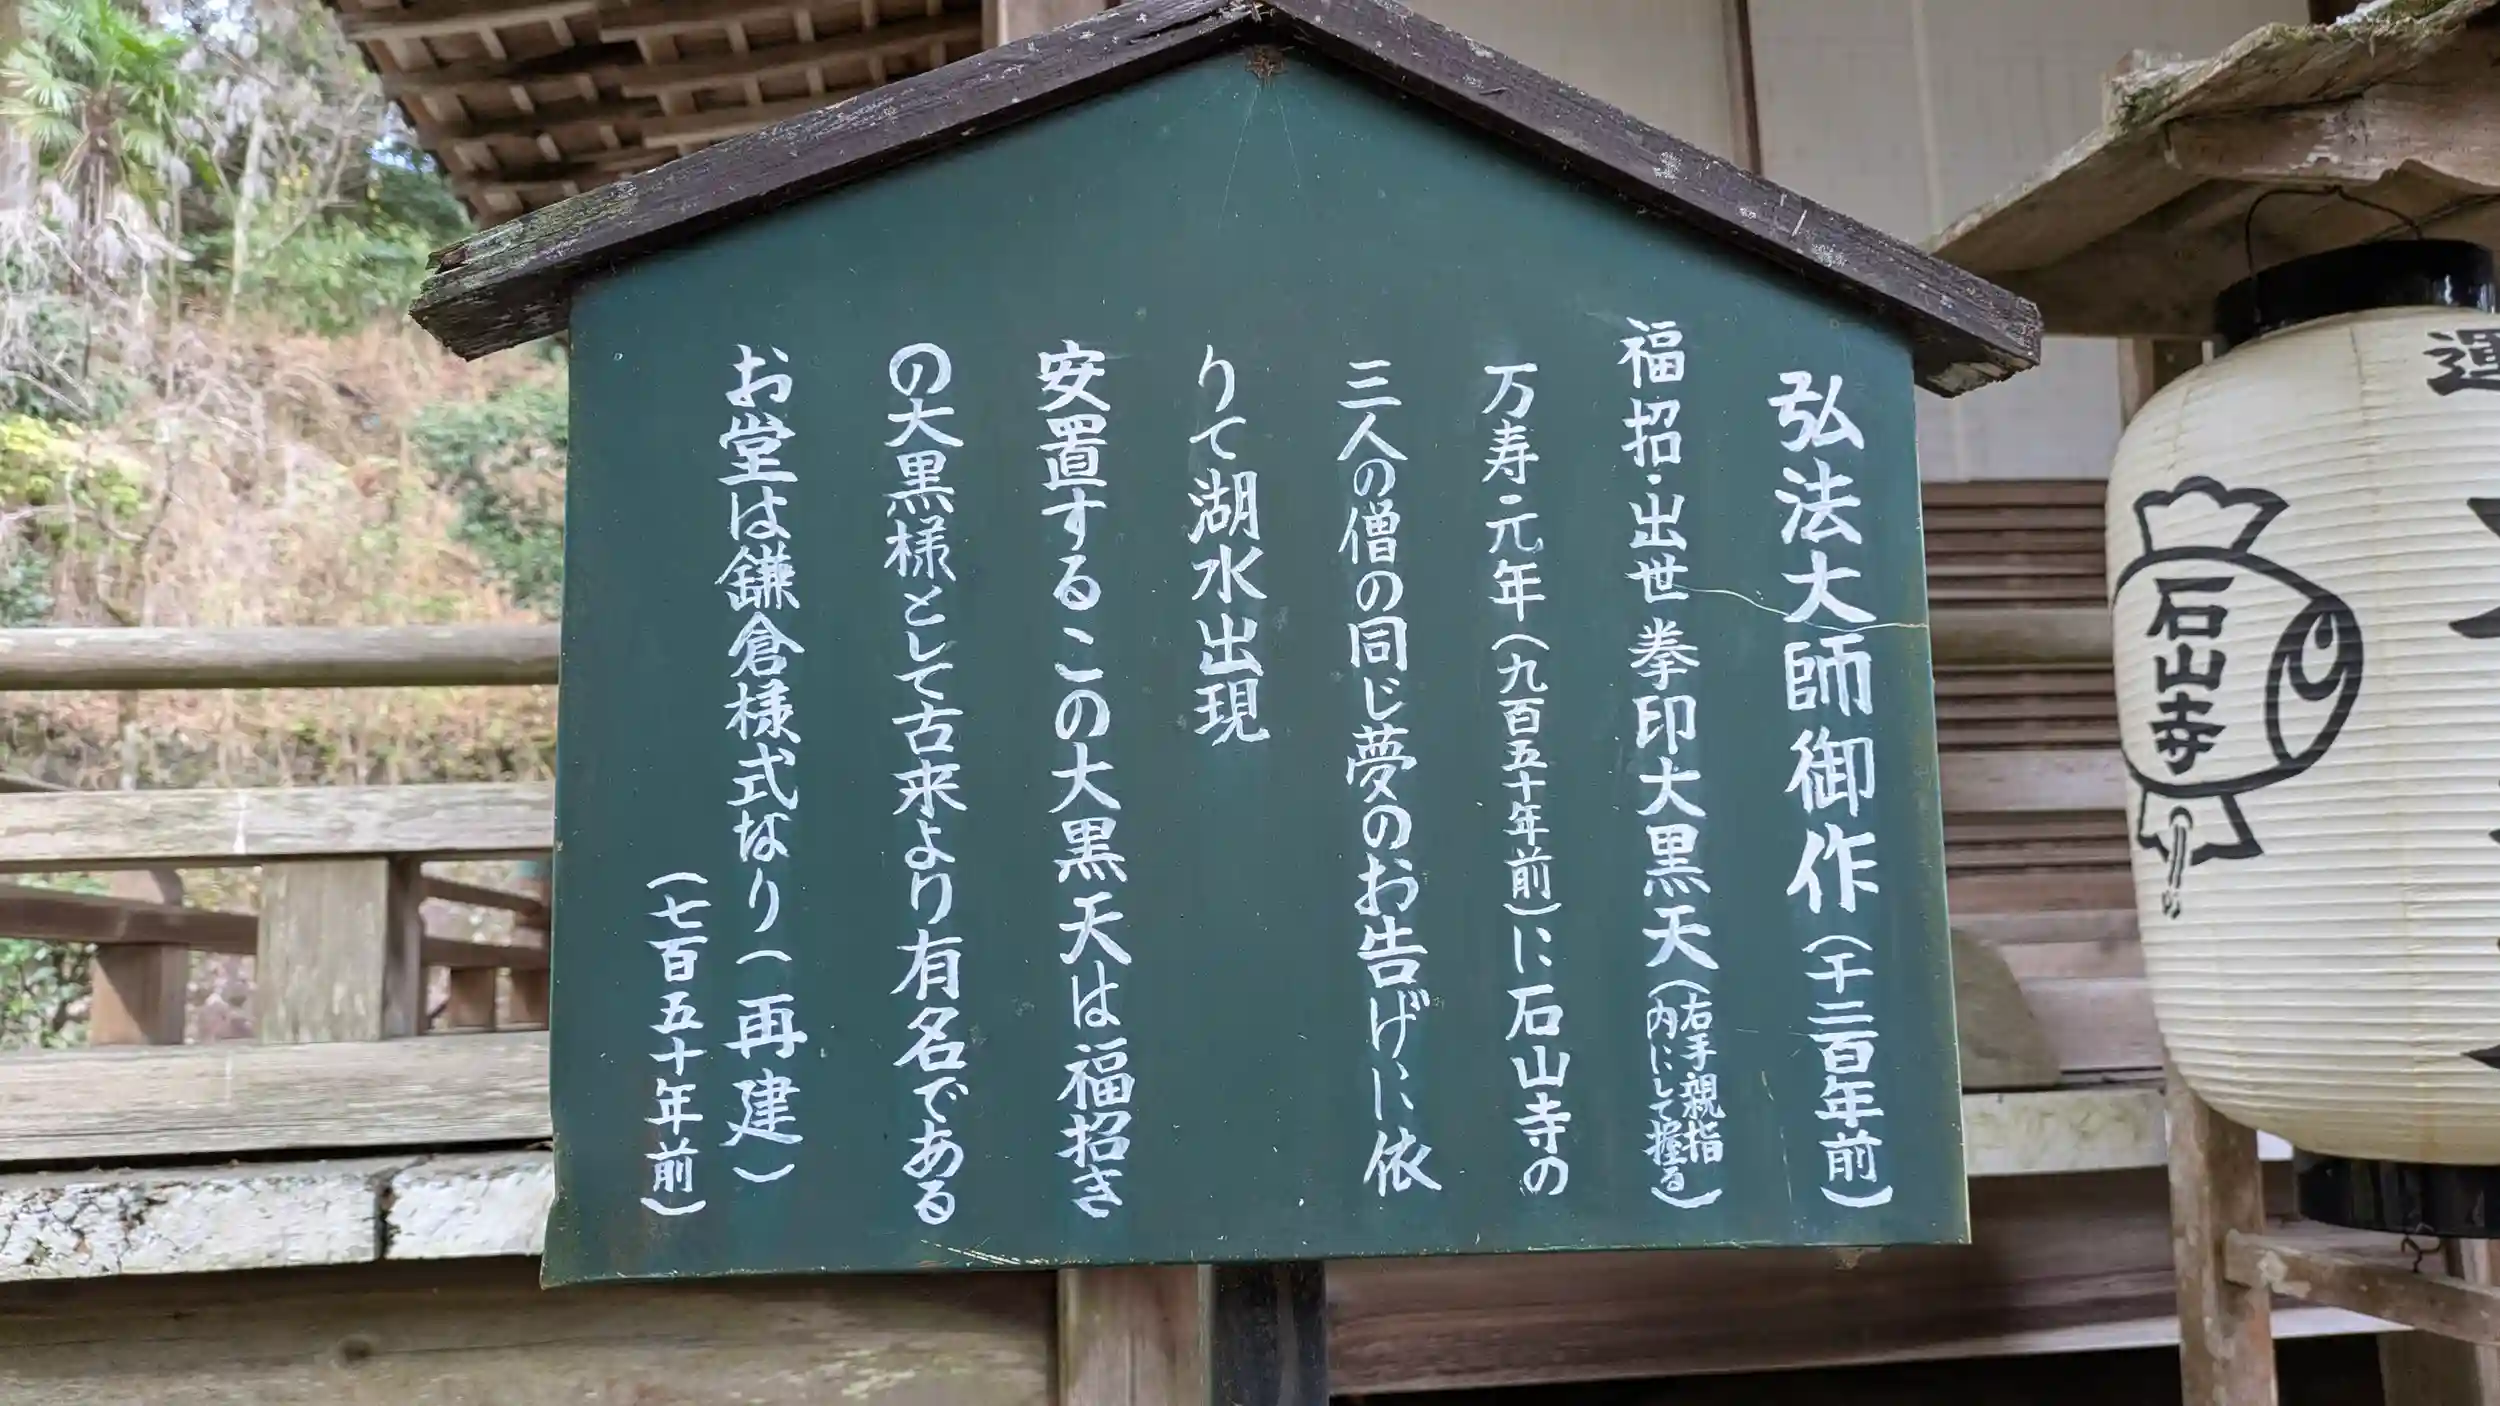 弘法大師御作(千二百年前)
福招・出世拳印大黒天(右手親指内にして握る)
万寿元年(九百五十年前)に石山寺の
三人の僧の同じ夢のお告げに依
りて湖水出現
安置するこの大黒天は福招き
の大黒様として古来より有名である
お堂は鎌倉様式なり(再建)
(七百五十年前)
運
石山寺